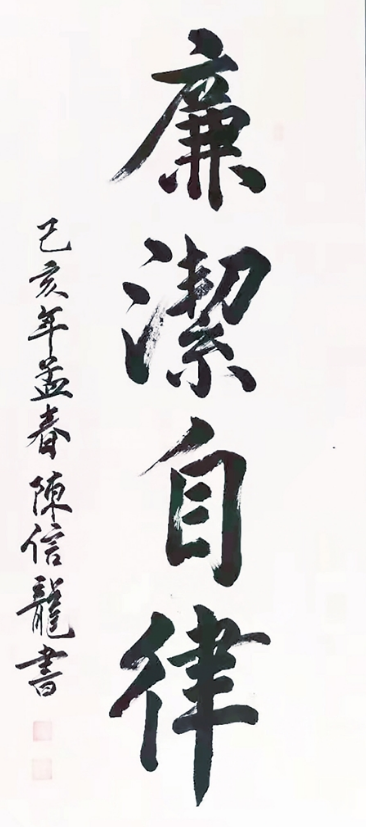 廉潔自律
己亥年孟春陳信龍書